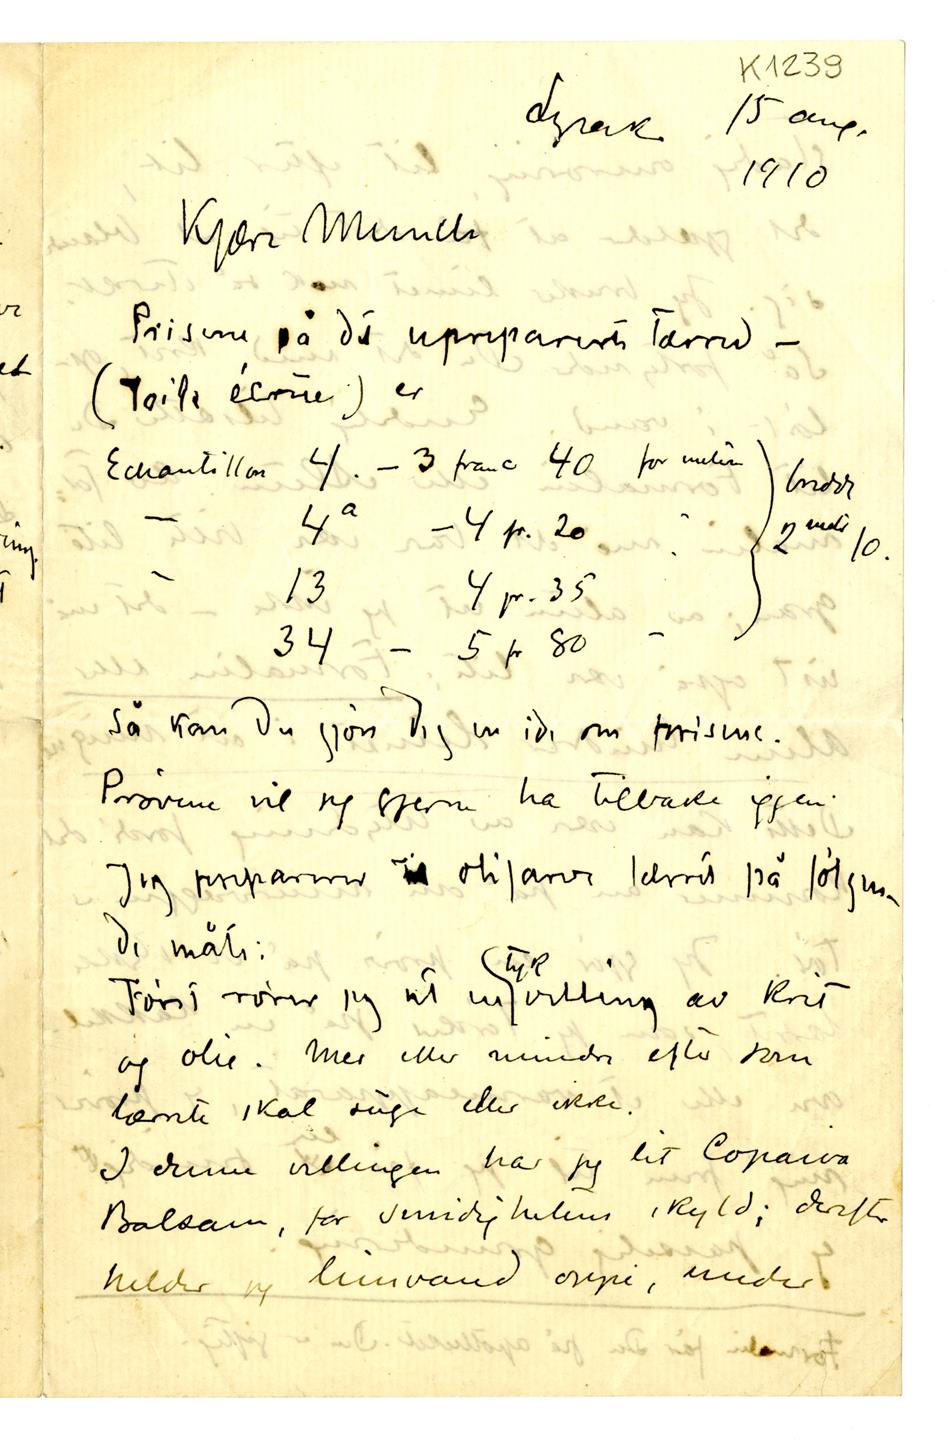 K1239
Lysak 15 aug.
1910
Kjære Munch
Prisene på det upreparerte lærred –
(Toile écrue) er
Echantillon 4. – 3 franc 40 for meteren
– 4a – 4 fr. 20 "
– 13 4 fr. 35
34 – 5 fr 80 –
bredde
2 metr 10.
Så kan Du gjøre Dig en ide om prisene.
Prøvene vil jeg gjerne ha tilbake igjen.
Jeg preparerer oljfarve lærret på følgen-
de måte:
Først rører jeg ut en tyk velling av krit
og olie. Mer eller mindre efter som
lærrete skal suge eller ikke.
I denne vellingen har jeg lit Copaiva
Balsam, for smidighetens skyld; derefter
helder jeg limvand oppi, under